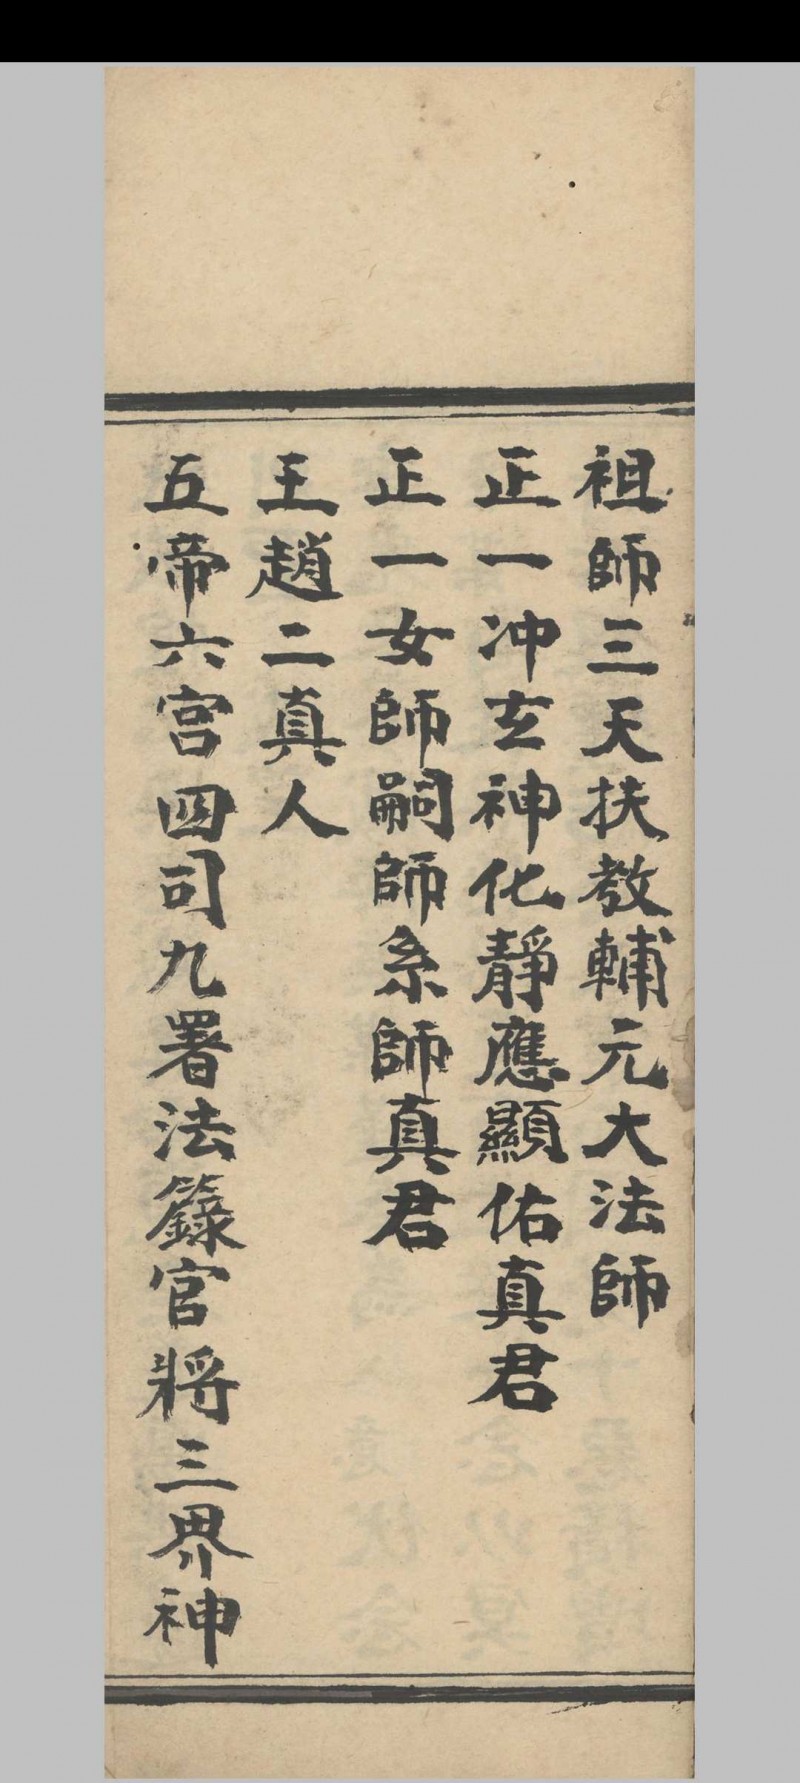 祖師三天扶教輔元大法師
正一冲玄神化靜應顯佑真君
正一女師嗣師系師真君
王趙二真人
五帝六宮四司九署法籙官將三界神